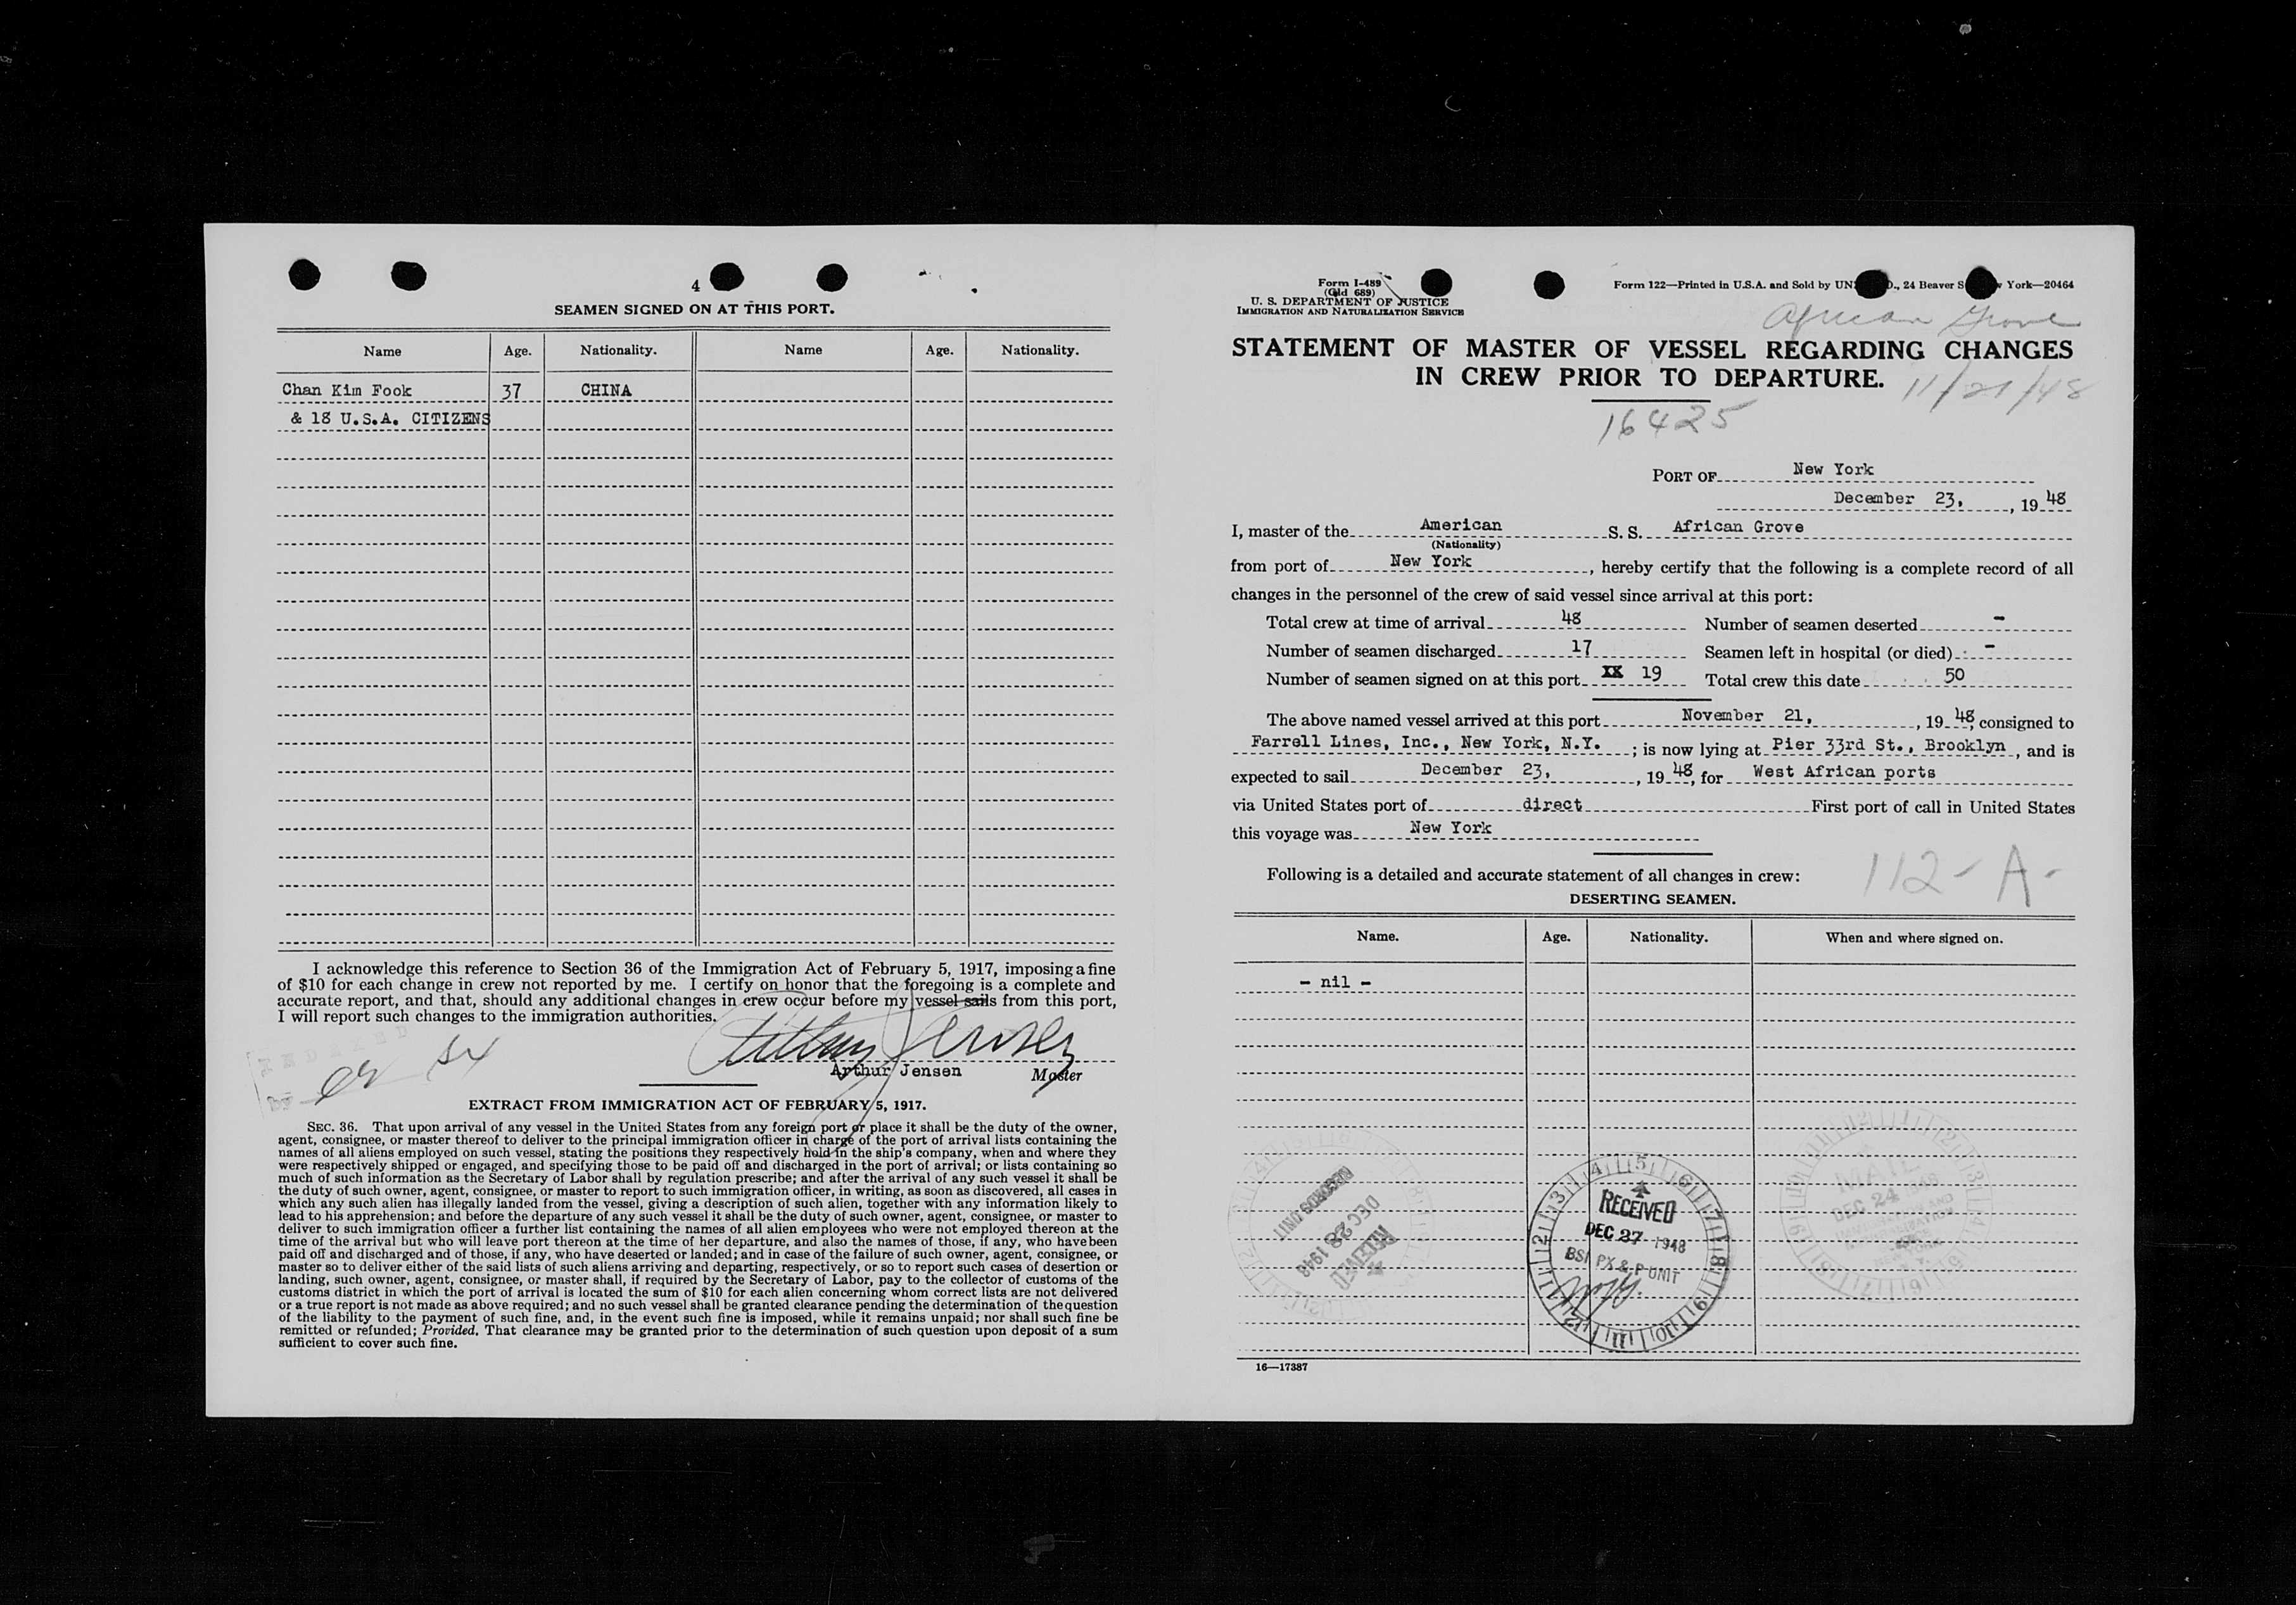 4
SEAMEN SIGNED ON AT THIS PORT.
Name Age. Nationality. Name Age. Nationality.
Chan Kim Fook 37 CHINA
& 18 U.S.A. CITIZENS
I acknowledge this reference to Section 36 of the Immigration Act of February 5, 1917, imposing a fine
of $10 for each change in crew not reported by me. I certify on honor that the foregoing is a complete and
accurate report, and that, should any additional changes in crew occur before my vessel sails from this port,
I will report such changes to the immigration authorities.
Arthur Jensen
Arthur Jensen Master
EXTRACT FROM IMMIGRATION ACT OF FEBRUARY 5, 1917.
SEC. 36. That upon arrival of any vessel in the United States from any foreign port or place it shall be the duty of the owner,
agent, consignee, or master thereof to deliver to the principal immigration officer in charge of the port of arrival lists containing the
names of all aliens employed on such vessel, stating the positions they respectively hold in the ship's company, when and where they
were respectively shipped or engaged, and specifying those to be paid off and discharged in the port of arrival; or lists containing so
much of such information as the Secretary of Labor shall by regulation prescribe; and after the arrival of any such vessel it shall be
the duty of such owner, agent, consignee, or master to report to such immigration officer, in writing, as soon as discovered, all cases in
which any such alien has illegally landed from the vessel, giving a description of such alien, together with any information likely to
lead to his apprehension; and before the departure of any such vessel it shall be the duty of such owner, agent, consignee, or master to
deliver to such immigration officer a further list containing the names of all alien employees who were not employed thereon at the
time of the arrival but who will leave port thereon at the time of her departure, and also the names of those, if any, who have been
paid off and discharged and of those, if any, who have deserted or landed; and in case of the failure of such owner, agent, consignee, or
master so to deliver either of the said lists of such aliens arriving and departing, respectively, or so to report such cases of desertion or
landing, such owner, agent, consignee, or master shall, if required by the Secretary of Labor, pay to the collector of customs of the
customs district in which the port of arrival is located the sum of $10 for each alien concerning whom correct lists are not delivered
or a true report is not made as above required; and no such vessel shall be granted clearance pending the determination of the question
of the liability to the payment of such fine, and, in the event such fine is imposed, while it remains unpaid; nor shall such fine be
remitted or refunded; Provided, That clearance may be granted prior to the determination of such question upon deposit of a sum
sufficient to cover such fine.
Form I-489
(Old 689)
U. S. DEPARTMENT OF JUSTICE
IMMIGRATION AND NATURALIZATION SERVICE
Form 122—Printed in U.S.A. and Sold by UN D., 24 Beaver S York—20464
African Grove
STATEMENT OF MASTER OF VESSEL REGARDING CHANGES
IN CREW PRIOR TO DEPARTURE.
11/21/48
16425
PORT OF New York
December 23, , 19 48
I, master of the American S. S. African Grove
(Nationality)
from port of New York , hereby certify that the following is a complete record of all
changes in the personnel of the crew of said vessel since arrival at this port:
Total crew at time of arrival 48 Number of seamen deserted -
Number of seamen discharged 17 Seamen left in hospital (or died) -
Number of seamen signed on at this port XX 19 Total crew this date 50
The above named vessel arrived at this port November 21, , 19 48, consigned to
Farrell Lines, Inc., New York, N.Y. ; is now lying at Pier 33rd St., Brooklyn , and is
expected to sail December 23, , 19 48, for West African ports
via United States port of direct First port of call in United States
this voyage was New York
112-A-
Following is a detailed and accurate statement of all changes in crew:
DESERTING SEAMEN.
Name. Age. Nationality. When and where signed on.
- nil -
RECORDS UNIT
DEC 28 1948
RECEIVED
RECEIVED
DEC 27 1948
BSI PX & P UNIT
MAIL
DEC 24 1948
16—17387